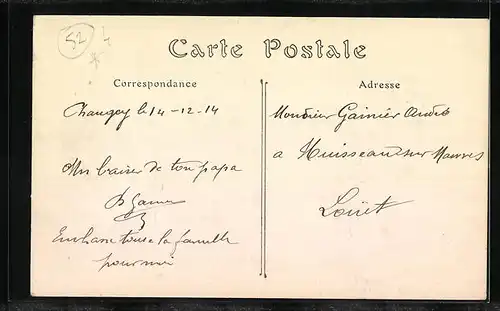 52
4
Carte Postale
Correspondance
Adresse
le 14-12-14
Un baiser de ton papa
Embrasse toute la famille
pour moi
Monsieur Gainier André
a Huisseau sur Mauves
Loiret